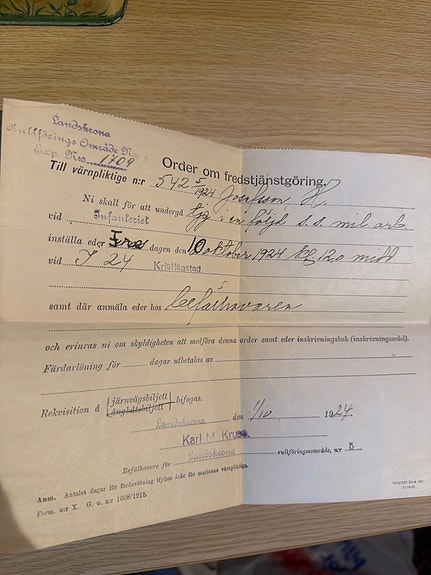 Landskrona
Rullförings Område Nr 5
Exp. Nro 1709
Order om fredstjänstgöring.
Till värnpliktige n:r 542 5/1924 Josefson H.
Ni skall för att undergå tjg i en följd s.s. mil. arb.
vid Infanteriet
inställa eder Fre dagen den 10 oktober 1924 kl. 12⁰⁰ midd
vid I 24 Kristianstad
samt där anmäla eder hos befälhavaren
och erinras ni om skyldigheten att medföra denna order samt eder inskrivningsbok (inskrivningssedel).
Färdavlöning för dagar utbetalas av
Rekvisition å järnvägsbiljett bifogas.
ångbåtsbiljett
Landskrona den 1/10 1924.
Karl M. Kruse
Befälhavare för Landskrona rullföringsområde, n:r 5
Anm. Antalet dagar för färdavlöning ifylles icke för marinens värnpliktige.
Form. n:r X. G. o. n:r 1608/1918.